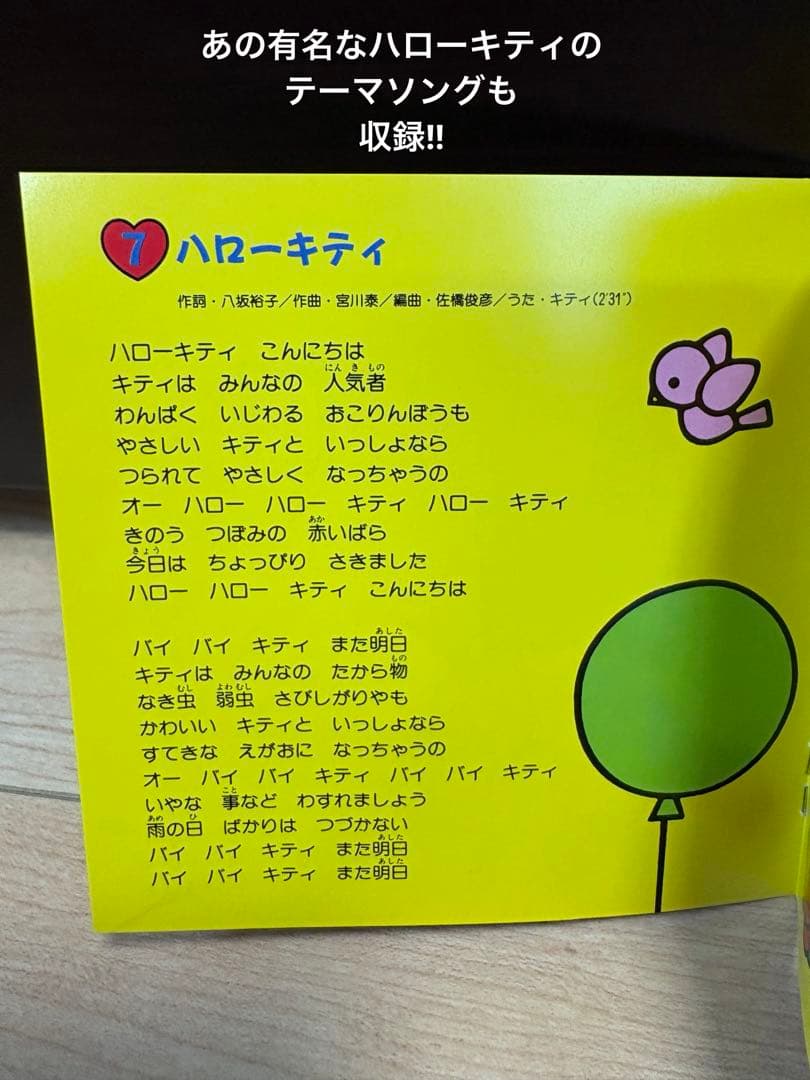 あの有名なハローキティの
テーマソングも
収録!!
7 ハローキティ
作詞・八坂裕子/作曲・宮川泰/編曲・佐橋俊彦/うた・キティ(2'31")
ハローキティ こんにちは
にん き もの
キティは みんなの 人気者
わんぱく いじわる おこりんぼうも
やさしい キティと いっしょなら
つられて やさしく なっちゃうの
オー ハロー ハロー キティ ハロー キティ
あか
きのう つぼみの 赤いばら
きょう
今日は ちょっぴり さきました
ハロー ハロー キティ こんにちは
あした
バイ バイ キティ また明日
もの
キティは みんなの たから物
むし よわむし
なき虫 弱虫 さびしがりやも
かわいい キティと いっしょなら
すてきな えがおに なっちゃうの
オー バイ バイ キティ バイ バイ キティ
こと
いやな 事など わすれましょう
あめ ひ
雨の日 ばかりは つづかない
あした
バイ バイ キティ また明日
あした
バイ バイ キティ また明日